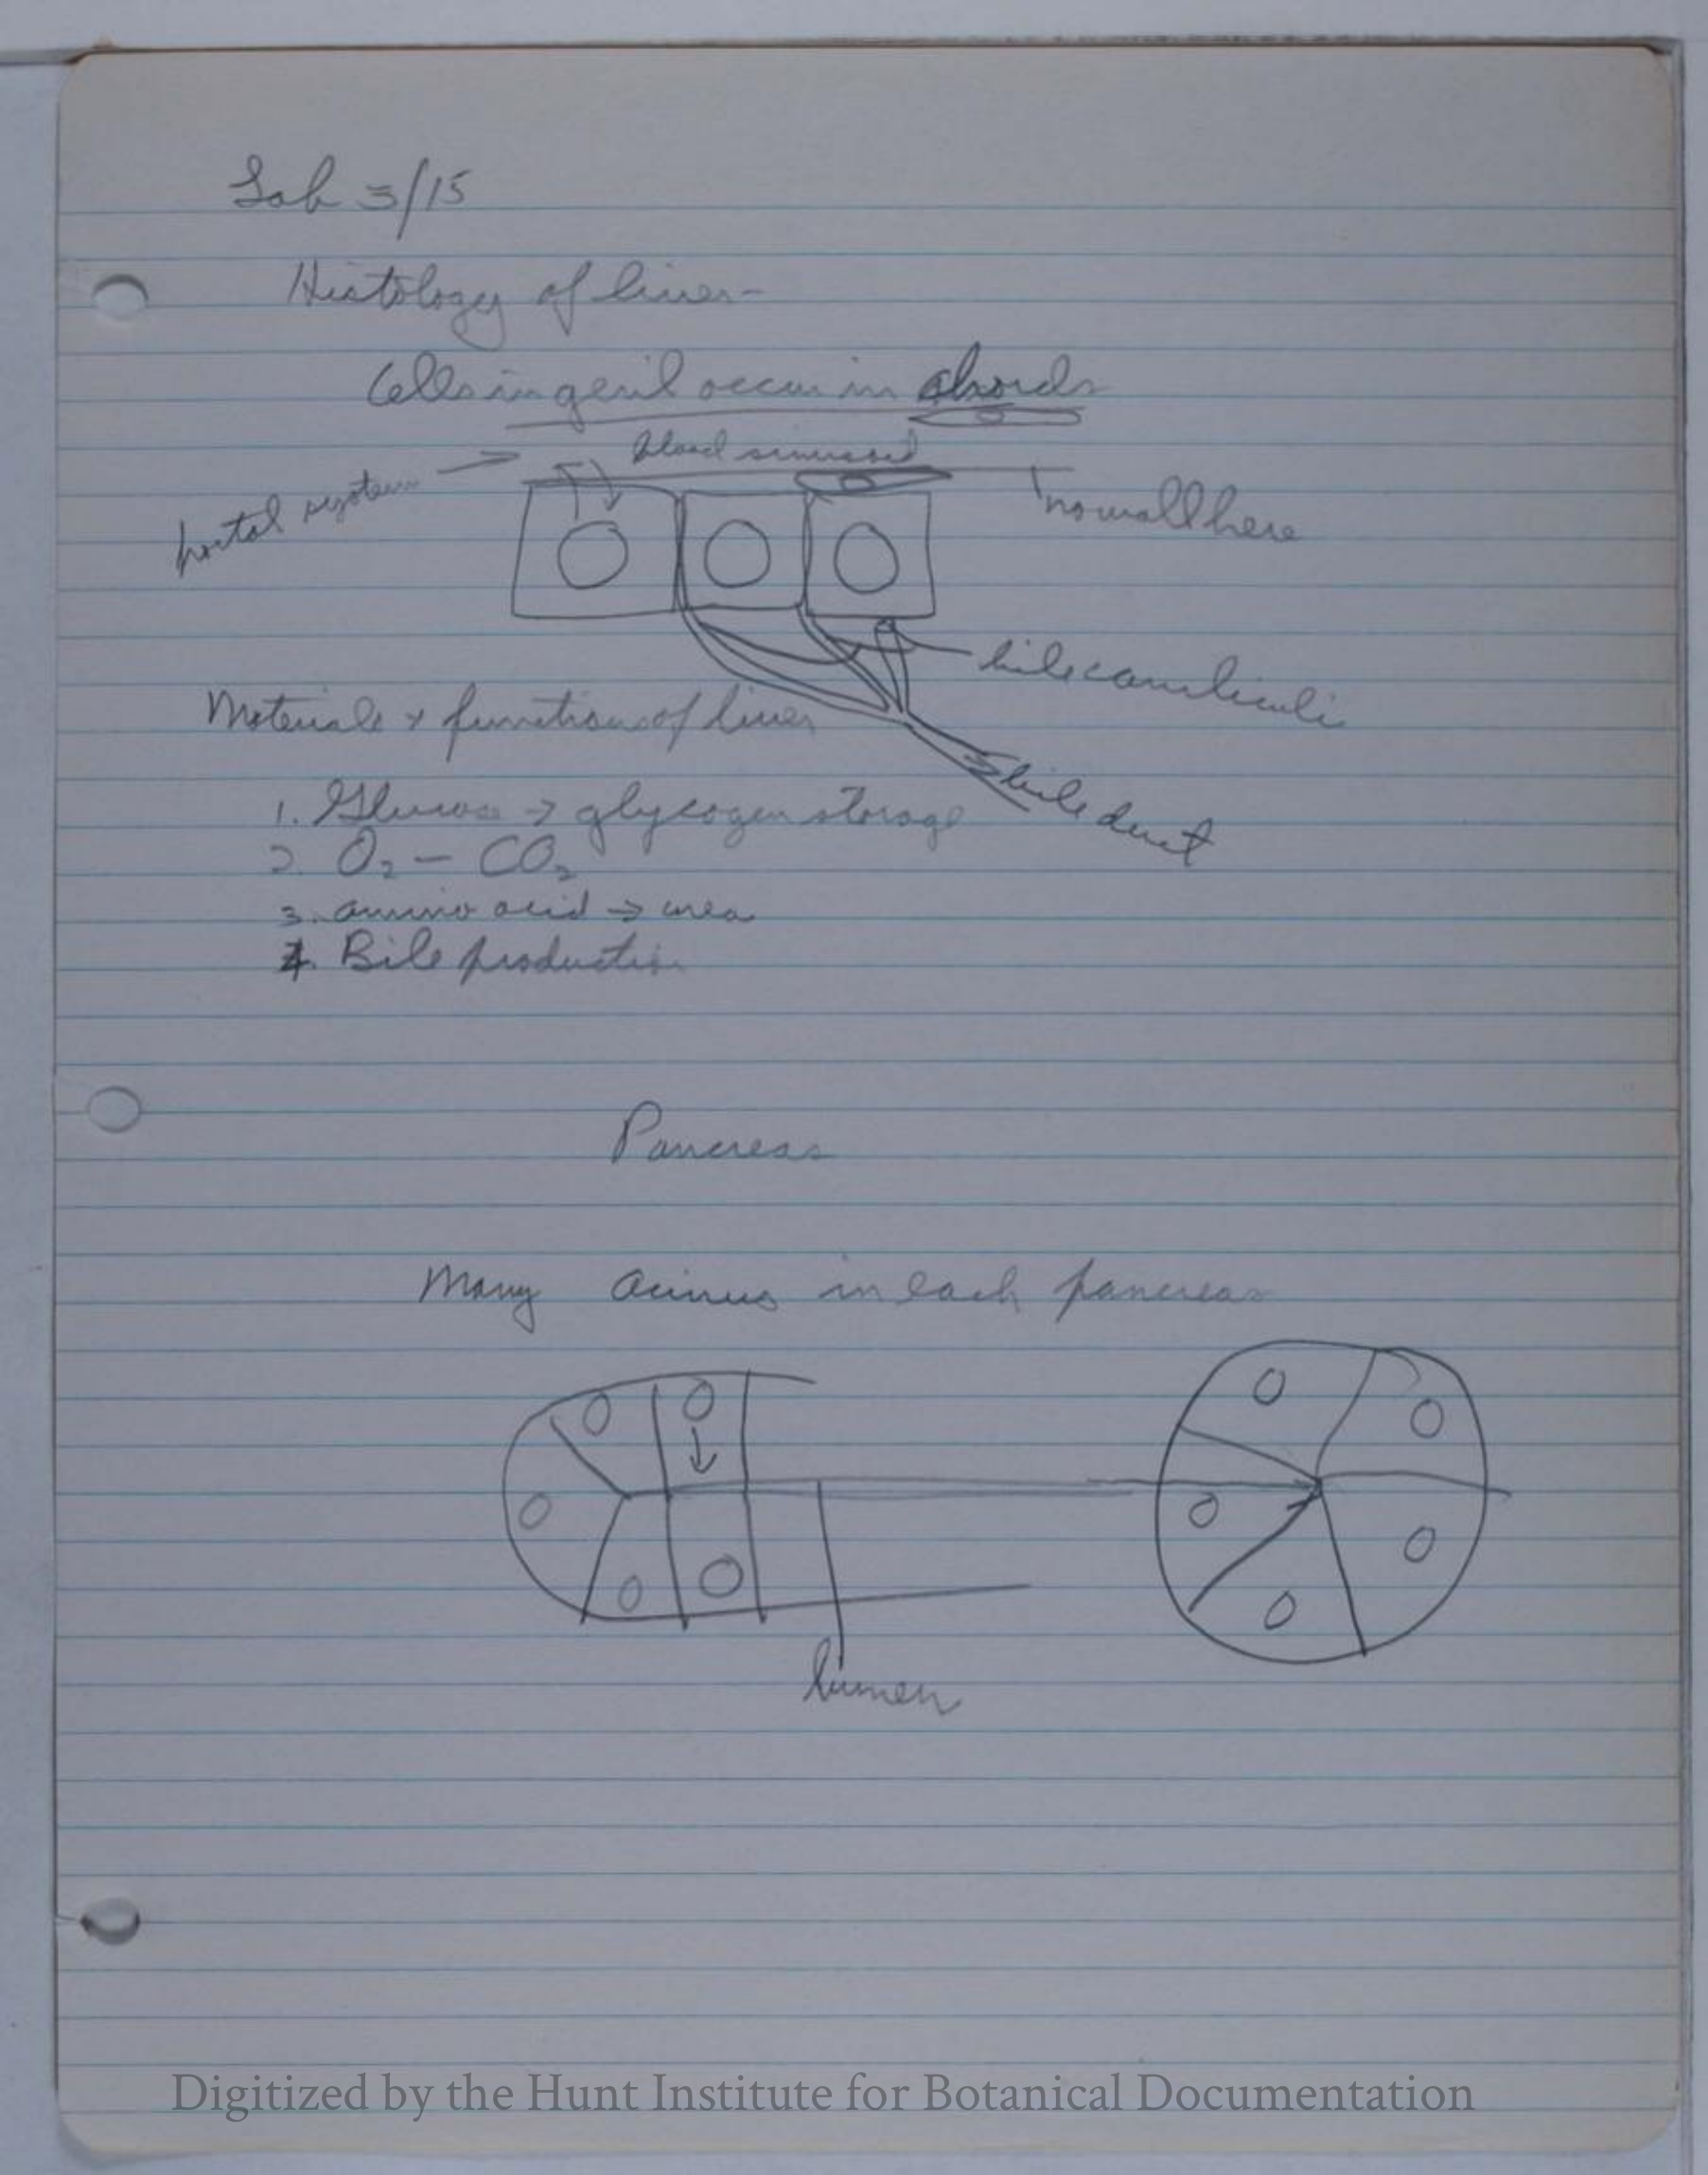 Lab 3/15
Histology of liver-
Cells in genil occur in chords
blood sinusoid
portal system
no wall here
bile canaliculi
Materials + functions of liver
bile duct
1. Glucose → glycogen storage
2. O₂ — CO₂
3. amino acid → urea
4. Bile production
Pancreas
Many acinus in each pancreas
lumen
Digitized by the Hunt Institute for Botanical Documentation